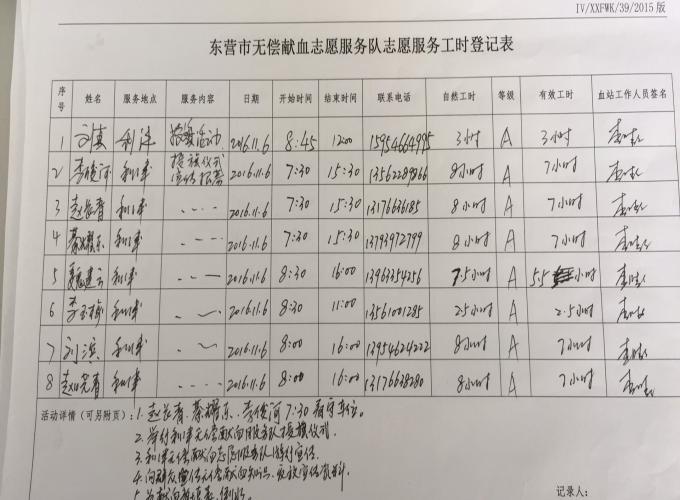 IV/XXFWK/39/2015版
东营市无偿献血志愿服务队志愿服务工时登记表
序号 姓名 服务地点 服务内容 日期 开始时间 结束时间 联系电话 自然工时 等级 有效工时 血站工作人员签名
1 刘真 利津 活动 2016.11.6 8:45 12:00 15954664995 3小时 A 3小时
2 李俊河 利津 授旗仪式 宣传招募 2016.11.6 7:30 15:30 8小时 A 7小时
3 赵长青 利津 2016.11.6 7:30 15:30 13176636185 8小时 A 7小时
4 蔡耀东 利津 2016.11.6 7:30 15:30 13793972799 8小时 A 7小时
5 利津 2016.11.6 8:30 16:00 13963354256 7.5小时 A 5.5小时
6 李玉梅 利津 2016.11.6 8:30 11:00 13561001285 2.5小时 A 2.5小时
7 刘滨 利津 2016.11.6 8:00 16:00 13954624222 8小时 A 7小时
8 利津 2016.11.6 8:00 16:00 13176638280 8小时 A 7小时
活动详情(可另附页):1. 赵长青、蔡耀东、李俊河7:30看守车位。
2. 举行利津无偿献血服务队授旗仪式。
3. 利津无偿献血志愿服务队宣传。
4. 向群众宣传无偿献血知识、发放宣传资料。
5.
记录人: